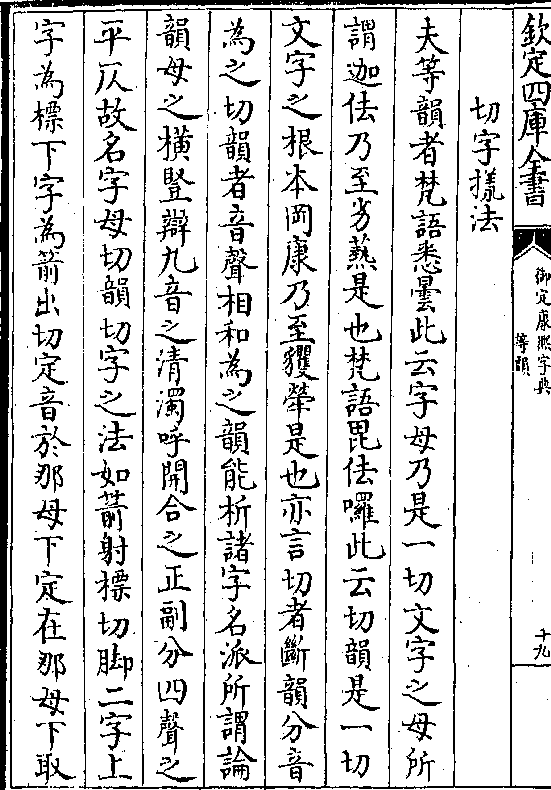 欽定四庫全書
御定康熙字典
等韻
十九
切字樣法
夫等韻者梵語悉曇此云字母乃是一切文字之母所
謂迦佉乃至劣爇是也梵語毘佉囉此云切韻是一切
文字之根本岡康乃至玃犖是也亦言切者斷韻分音
為之切韻者音聲相和為之韻能析諸字名派所謂論
韻母之橫豎辯九音之清濁呼開合之正副分四聲之
平仄故名字母切韻切字之法如箭射標切脚二字上
字為標下字為箭出切定音於那母下定在那母下取